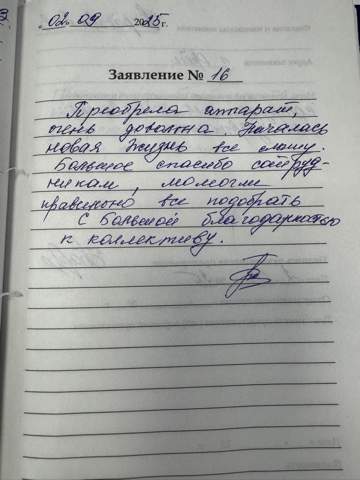 «02» 09 2025 г.
Заявление № 16
Преобрела аппарат,
очень довольна. Началась
новая жизнь все слышу.
Большое спасибо сотруд-
никам, помогли
правильно все подобрать
С большой благодарностью
к коллективу.